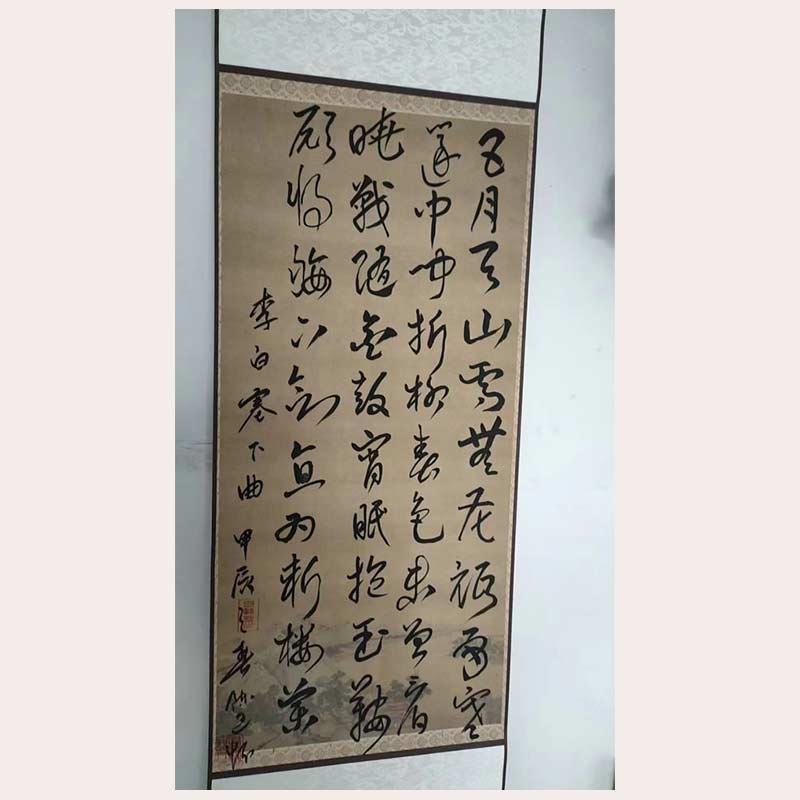 五月天山雪無花祇有寒
笛中聞折柳春色未曾看
曉戰隨金鼓宵眠抱玉鞍
願將腰下劍直為斬樓蘭
李白塞下曲 甲辰之春